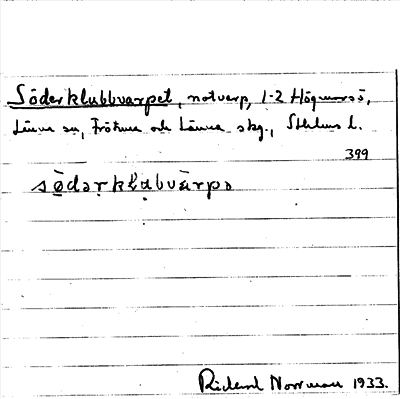 Söderklubbvarpet, notvarp, 1-2 Högmarsö,
Länna sn, Frötuna och Länna skg., Sthlms l.
399
södərklubvàrpə
Rickard Norrman 1933.